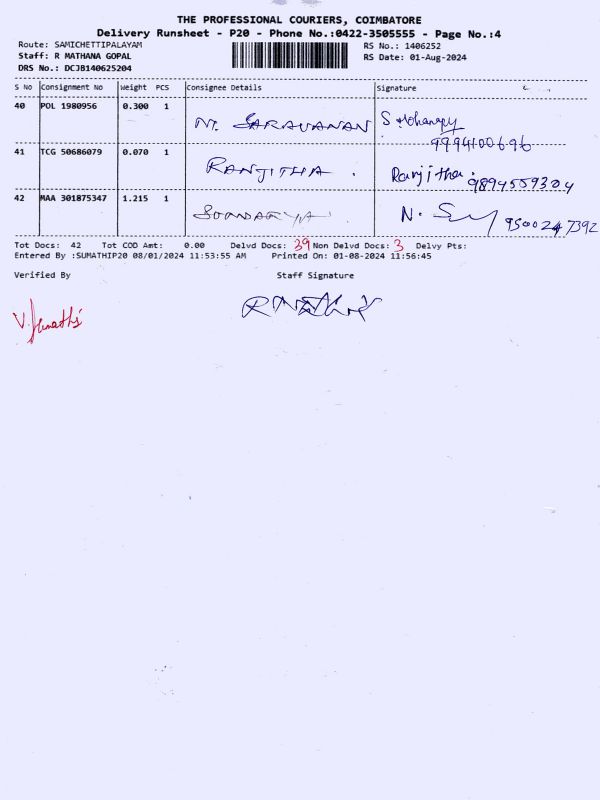 THE PROFESSIONAL COURIERS, COIMBATORE
Delivery Runsheet - P20 - Phone No.:0422-3505555 - Page No.:4
Route: SAMICHETTIPALAYAM
RS No.: 1406252
Staff: R MATHANA GOPAL
RS Date: 01-Aug-2024
DRS No.: DCJB140625204
S No Consignment No Weight PCS Consignee Details Signature
40 POL 1980956 0.300 1 N. SARAVANAN
9994100696
41 TCG 50686079 0.070 1 RANJITHA . Ranjitha. 9894559304
42 MAA 301875347 1.215 1 SOUNDARYA N. 9500247392
Tot Docs: 42 Tot COD Amt: 0.00 Delvd Docs: 39 Non Delvd Docs: 3 Delvy Pts:
Entered By :SUMATHIP20 08/01/2024 11:53:55 AM Printed On: 01-08-2024 11:56:45
Verified By Staff Signature